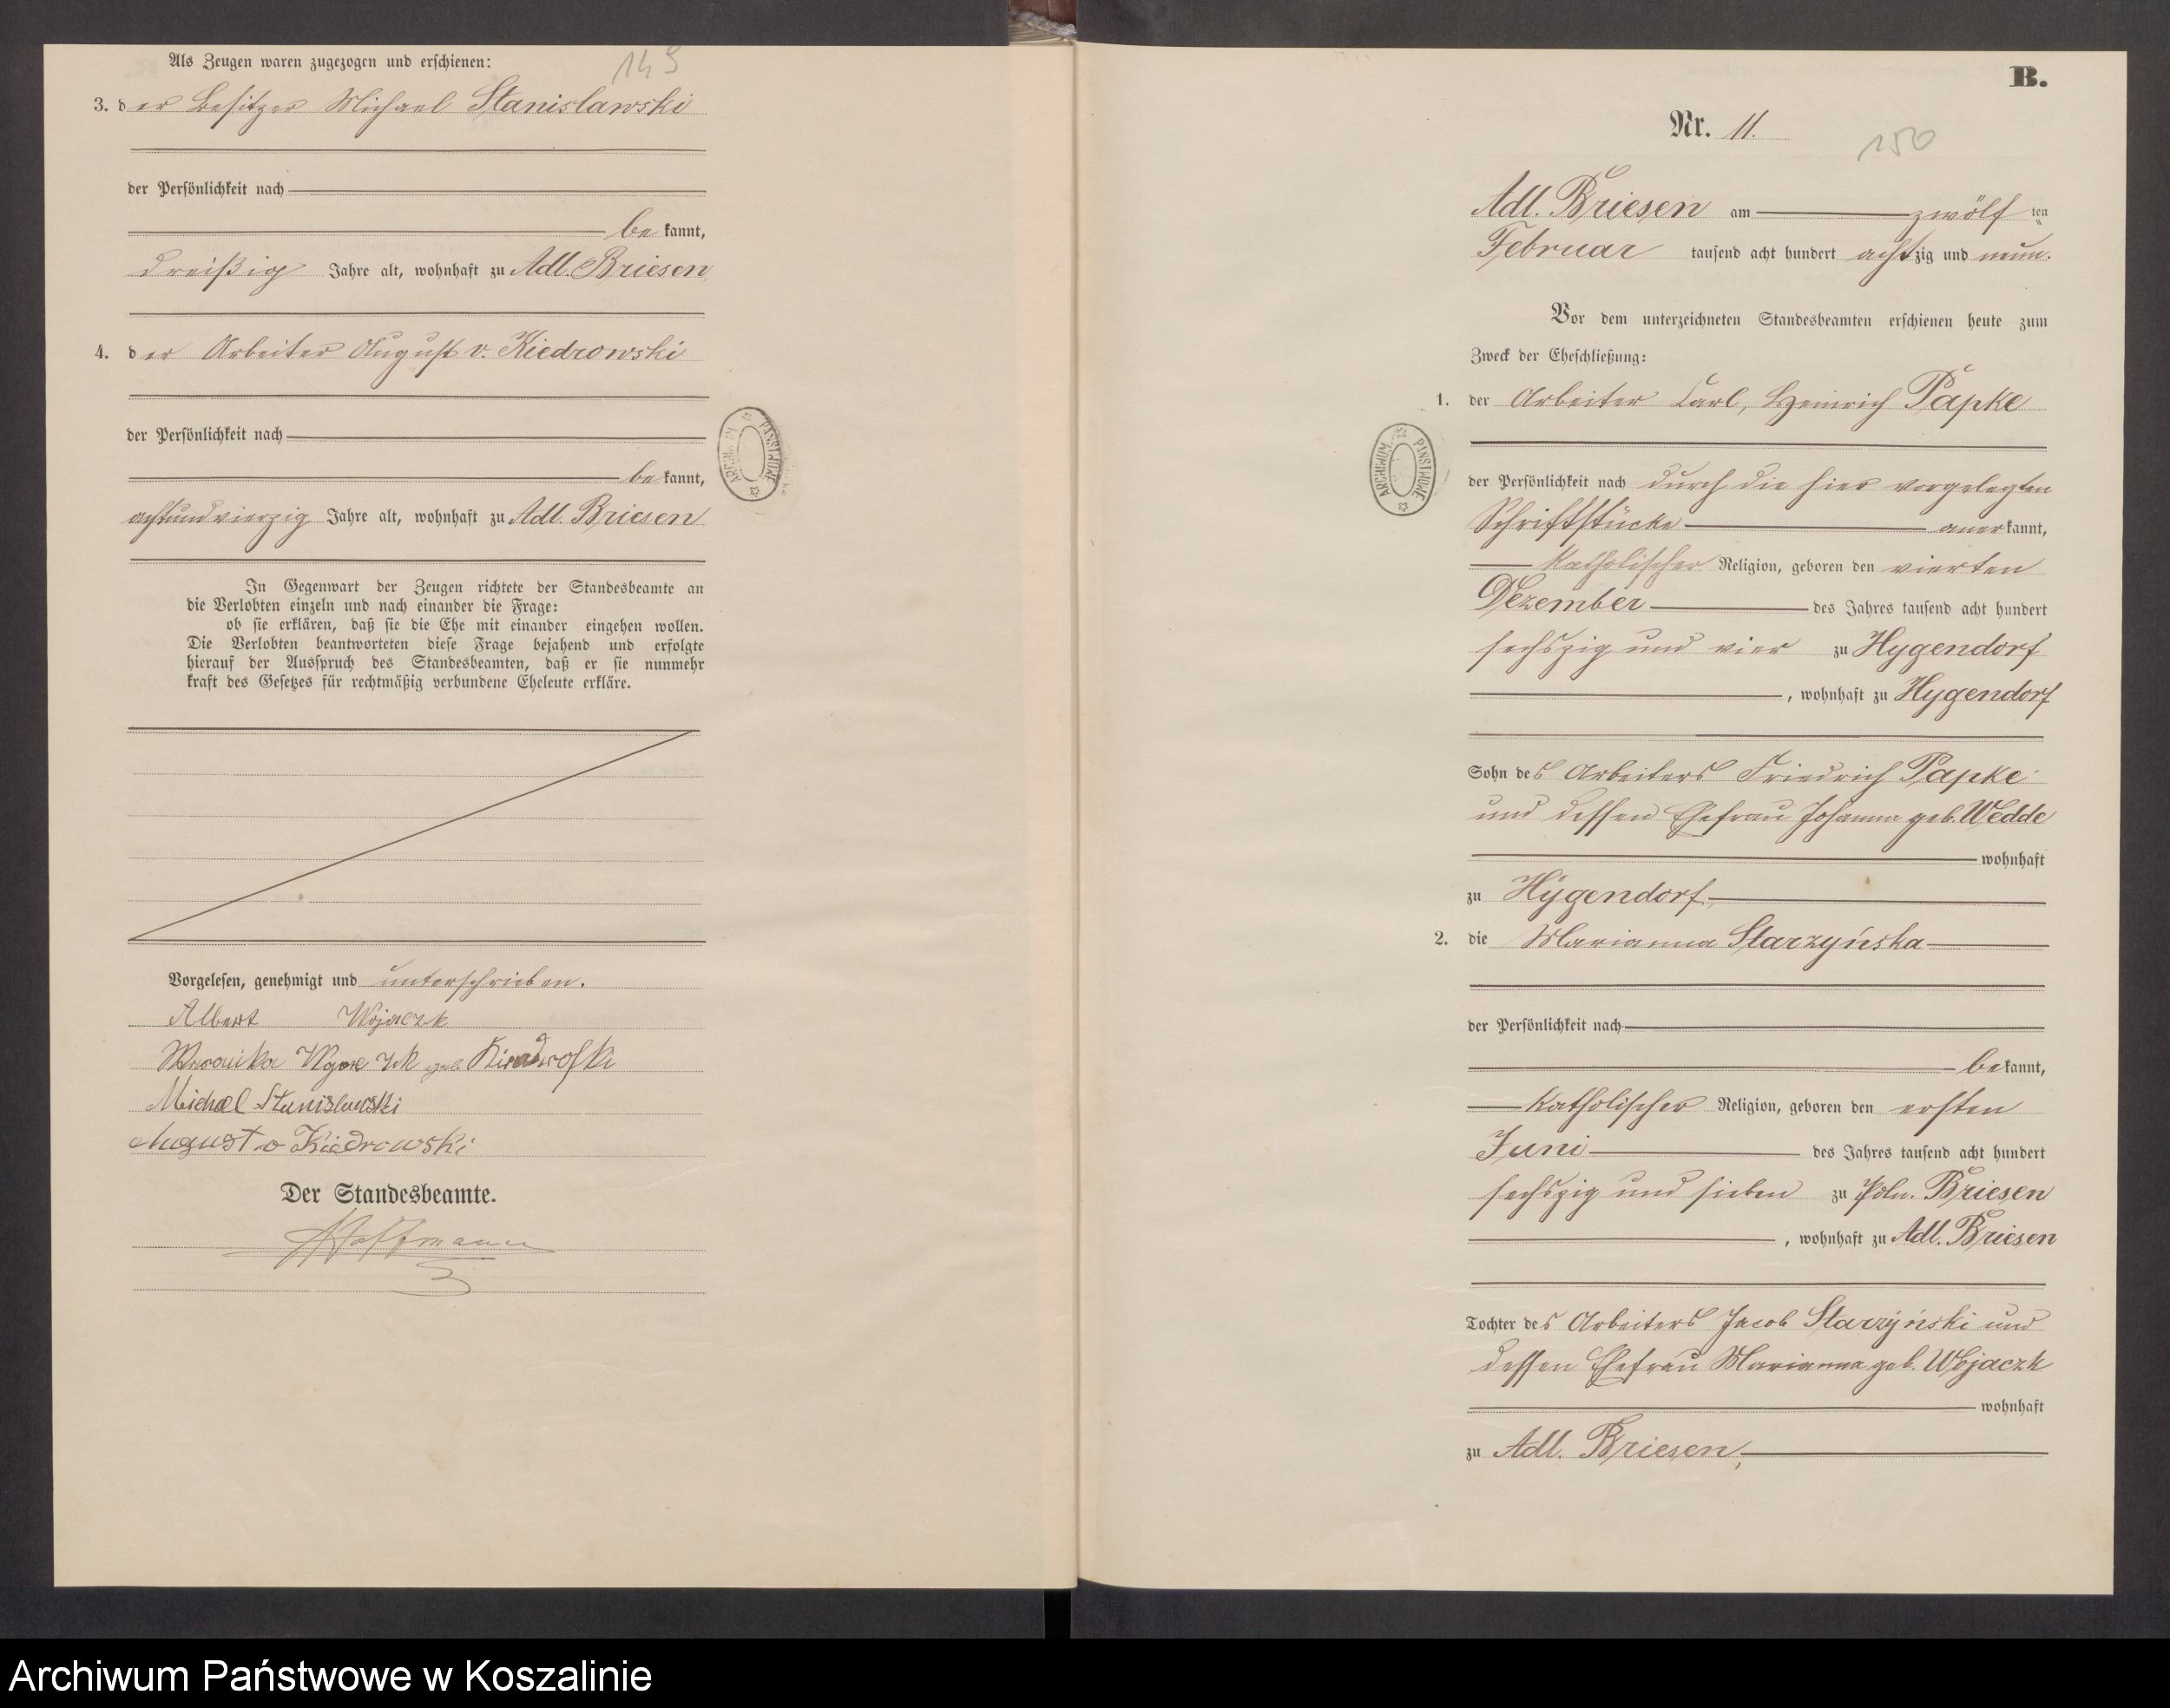 149
Als Zeugen waren zugezogen und erschienen:
3. der Besitzer Michael Stanislawski
der Persönlichkeit nach
be kannt,
dreißig Jahre alt, wohnhaft zu Adl. Briesen
4. der Arbeiter August v. Kiedrowski
der Persönlichkeit nach
be kannt,
achtundvierzig Jahre alt, wohnhaft zu Adl. Briesen
In Gegenwart der Zeugen richtete der Standesbeamte an
die Verlobten einzeln und nach einander die Frage:
ob sie erklären, daß sie die Ehe mit einander eingehen wollen.
Die Verlobten beantworteten diese Frage bejahend und erfolgte
hierauf der Ausspruch des Standesbeamten, daß er sie nunmehr
kraft des Gesetzes für rechtmäßig verbundene Eheleute erkläre.
Vorgelesen, genehmigt und unterschrieben.
Albert Wojaczk
geb.
Michael Stanislawski
August v Kiedrowski
Der Standesbeamte.
Hoffmann
ARCHIWUM PAŃSTWOWE
B.
Nr. 11.
150
Adl. Briesen am zwölf ten
Februar tausend acht hundert achtzig und neun.
Vor dem unterzeichneten Standesbeamten erschienen heute zum
Zweck der Eheschließung:
1. der Arbeiter Carl, Heinrich Papke
ARCHIWUM PAŃSTWOWE
der Persönlichkeit nach durch die hier vorgelegten
Schriftstücke anerkannt,
katholischer Religion, geboren den vierten
Dezember des Jahres tausend acht hundert
sechszig und vier zu Hygendorf
, wohnhaft zu Hygendorf
Sohn des Arbeiters Friedrich Papke
und dessen Ehefrau Johanna geb. Wedde
wohnhaft
zu Hygendorf
2. die Marianna Starzyńska
der Persönlichkeit nach
bekannt,
katholischer Religion, geboren den ersten
Juni des Jahres tausend acht hundert
sechszig und sieben zu Poln. Briesen
, wohnhaft zu Adl. Briesen
Tochter des Arbeiters Jacob Starzyński und
dessen Ehefrau Marianna geb. Wojaczk
wohnhaft
zu Adl. Briesen,
Archiwum Państwowe w Koszalinie